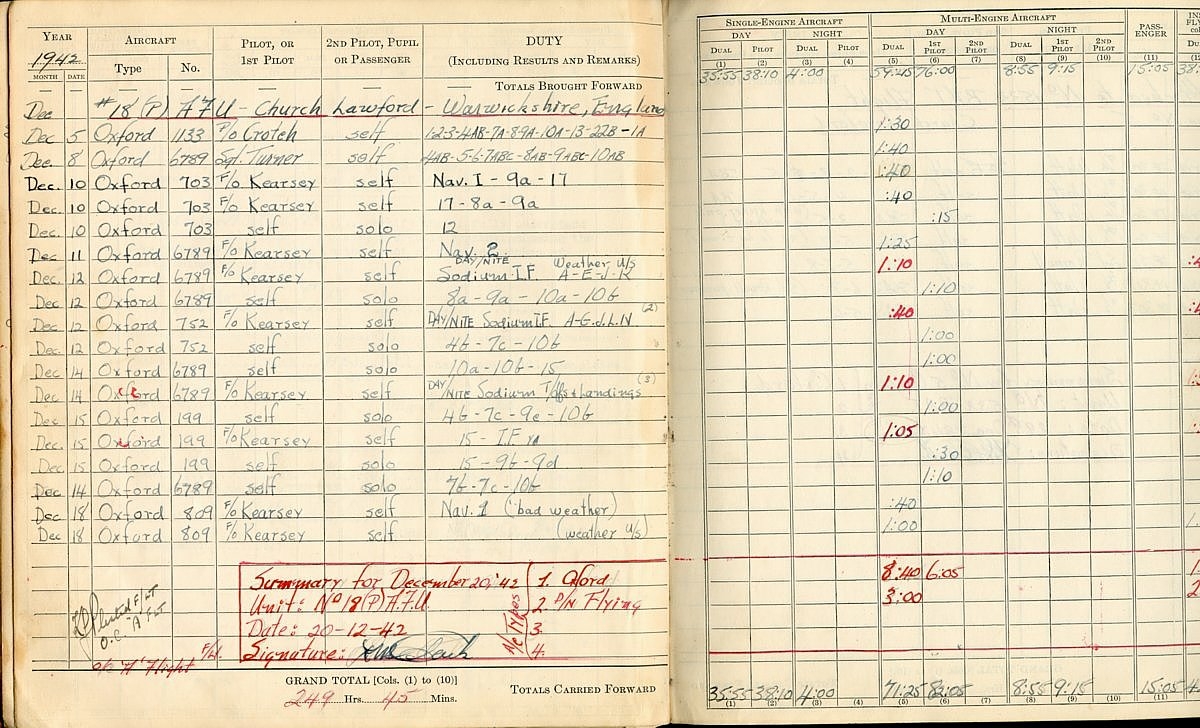 YEAR 1942 AIRCRAFT PILOT, OR 1ST PILOT 2ND PILOT, PUPIL OR PASSENGER DUTY (INCLUDING RESULTS AND REMARKS) SINGLE-ENGINE AIRCRAFT MULTI-ENGINE AIRCRAFT PASS-ENGER
DAY NIGHT DAY NIGHT
MONTH DATE Type No. DUAL PILOT DUAL PILOT DUAL 1ST PILOT 2ND PILOT DUAL 1ST PILOT 2ND PILOT
(1) (2) (3) (4) (5) (6) (7) (8) (9) (10) (11)
— — — — — — TOTALS BROUGHT FORWARD 35:55 38:10 4:00 59:45 76:00 8:55 9:15 15:05
Dec #18 (P) A.F.U – Church Lawford – Warwickshire, England
Dec 5 Oxford 1133 P/o Crotch self 1-2-3-4AB-7A-8-9A-10A-13-22B-1A 1:30
Dec. 8 Oxford 6789 Sgt. Turner self 4AB-5-6-7ABC-8AB-9ABC-10AB 1:40
Dec. 10 Oxford 703 F/o Kearsey self Nav. I - 9a - 17 :40
Dec. 10 Oxford 703 F/o Kearsey self 17 - 8a - 9a :40
Dec. 10 Oxford 703 self solo 12 :15
Dec 11 Oxford 6789 F/o Kearsey self Nav. 2 1:25
Dec. 12 Oxford 6789 F/o Kearsey self DAY/NITE Sodium I.F. Weather u/s A-E-J-K 1:10
Dec 12 Oxford 6789 self solo 8a - 9a - 10a - 10b 1:10
Dec 12 Oxford 752 F/o Kearsey self DAY/NITE Sodium I.F. A-G.J.L.N (2) :40
Dec. 12 Oxford 752 self solo 4b - 7c - 10b 1:00
Dec 14 Oxford 6789 self solo 10a - 10b - 15 1:00
Dec 14 Oxford 6789 F/o Kearsey self DAY/NITE Sodium T/offs & Landings (3) 1:10
Dec 15 Oxford 199 self solo 4b - 7c - 9e - 10b 1:00
Dec. 15 Oxford 199 F/o Kearsey self 15 - I.F. 1:05
Dec 15 Oxford 199 self solo 15 - 9b - 9d :30
Dec 14 Oxford 6789 self solo 7b - 7c - 10b 1:10
Dec 18 Oxford 809 F/o Kearsey self Nav. 1 (bad weather) :40
Dec 18 Oxford 809 F/o Kearsey self (weather u/s) 1:00
Summary for December 20, '42 1. Oxford 8:40 6:05
Unit: No 18 (P) A.F.U. A/c Types 2. D/N Flying 3:00
Date: 20-12-42 3.
Signature: 4.
F/Lt
O.C. "A" FLT
o/c 'A' Flight F/Lt.
GRAND TOTAL [Cols. (1) to (10)]
249 Hrs. 45 Mins.
TOTALS CARRIED FORWARD 35:55 38:10 4:00 71:25 82:05 8:55 9:15 15:05
(1) (2) (3) (4) (5) (6) (7) (8) (9) (10) (11)